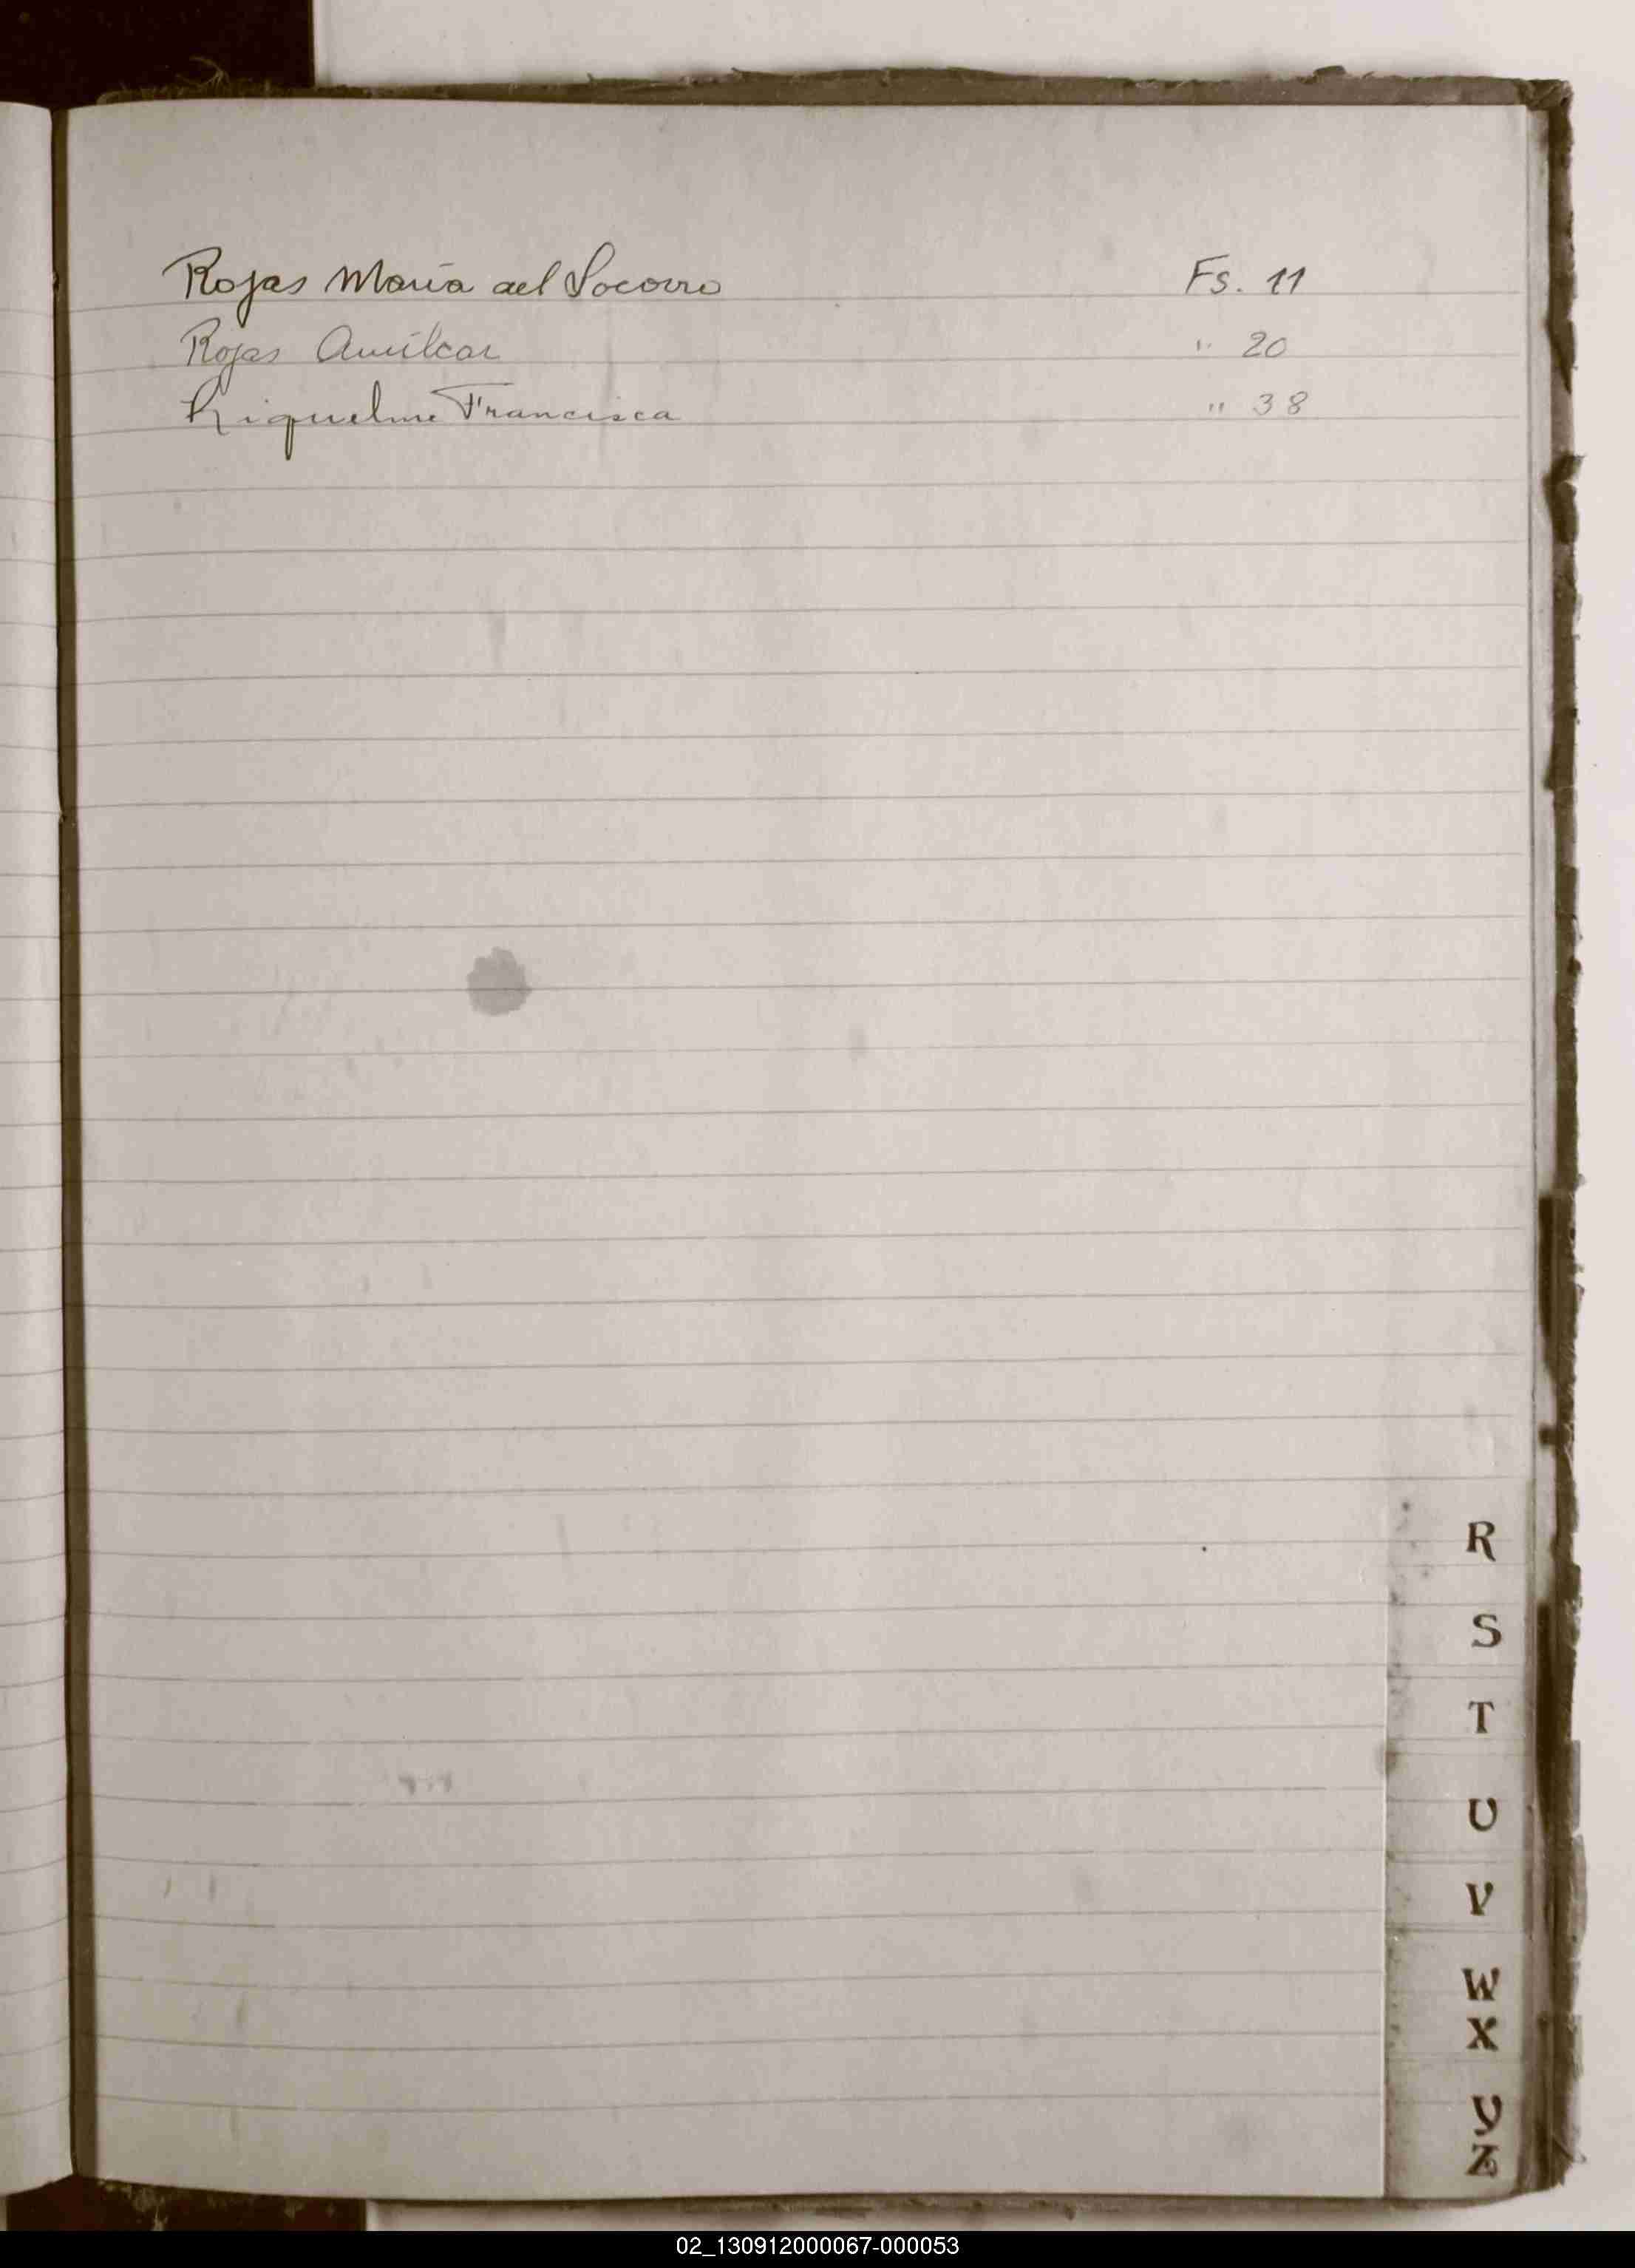 Rojas María del Socorro Fs. 11
Rojas Amilcar " 20
Riquelme Francisca " 38
R
S
T
U
V
W
X
Y
Z
02_130912000067-000053